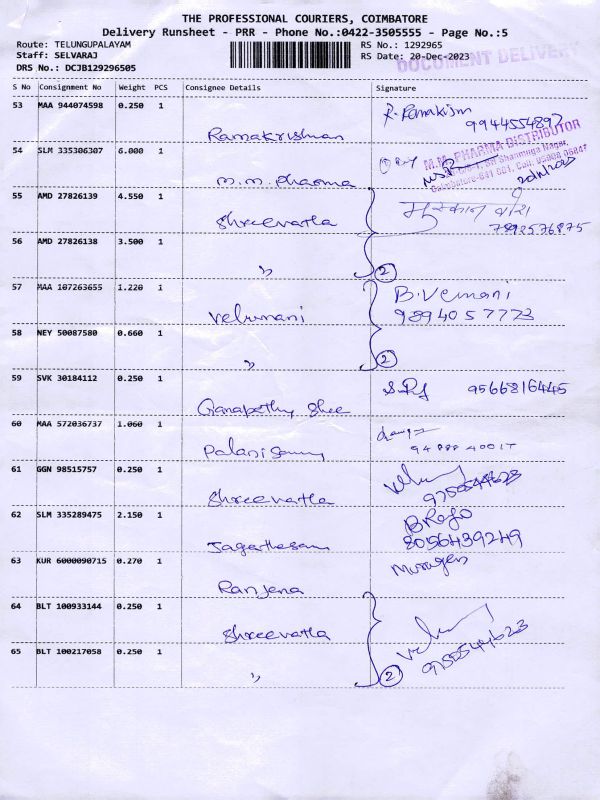 THE PROFESSIONAL COURIERS, COIMBATORE
Delivery Runsheet - PRR - Phone No.:0422-3505555 - Page No.:5
Route: TELUNGUPALAYAM
RS No.: 1292965
Staff: SELVARAJ
RS Date: 20-Dec-2023
DOCUMENT DELIVERY
DRS No.: DCJB129296505
S No Consignment No Weight PCS Consignee Details Signature
53 MAA 944074598 0.250 1
R. Ramakism
9944554897
Ramakrishnan
54 SLM 335306307 6.000 1
M.M. PHARMA DISTRIBUTOR
Shanmuga Nagar,
Coimbatore-641 001, Cell:
M.M. Pharma
55 AMD 27826139 4.550 1
Shreevatla
7892576875
56 AMD 27826138 3.500 1
" 2
57 MAA 107263655 1.220 1
B. Vemani
9894057773
Velumani
58 NEY 50087580 0.660 1
" 2
59 SVK 30184112 0.250 1
9566816445
Ganapathy Shee
60 MAA 572036737 1.060 1
Palanisamy
61 GGN 98515757 0.250 1
9750544623
Shreevatla
62 SLM 335289475 2.150 1
B Rajo
8056439249
Jagathesan
63 KUR 6000090715 0.270 1
Murugan
Ranjena
64 BLT 100933144 0.250 1
Shreevatla
9750544623
65 BLT 100217058 0.250 1
" 2